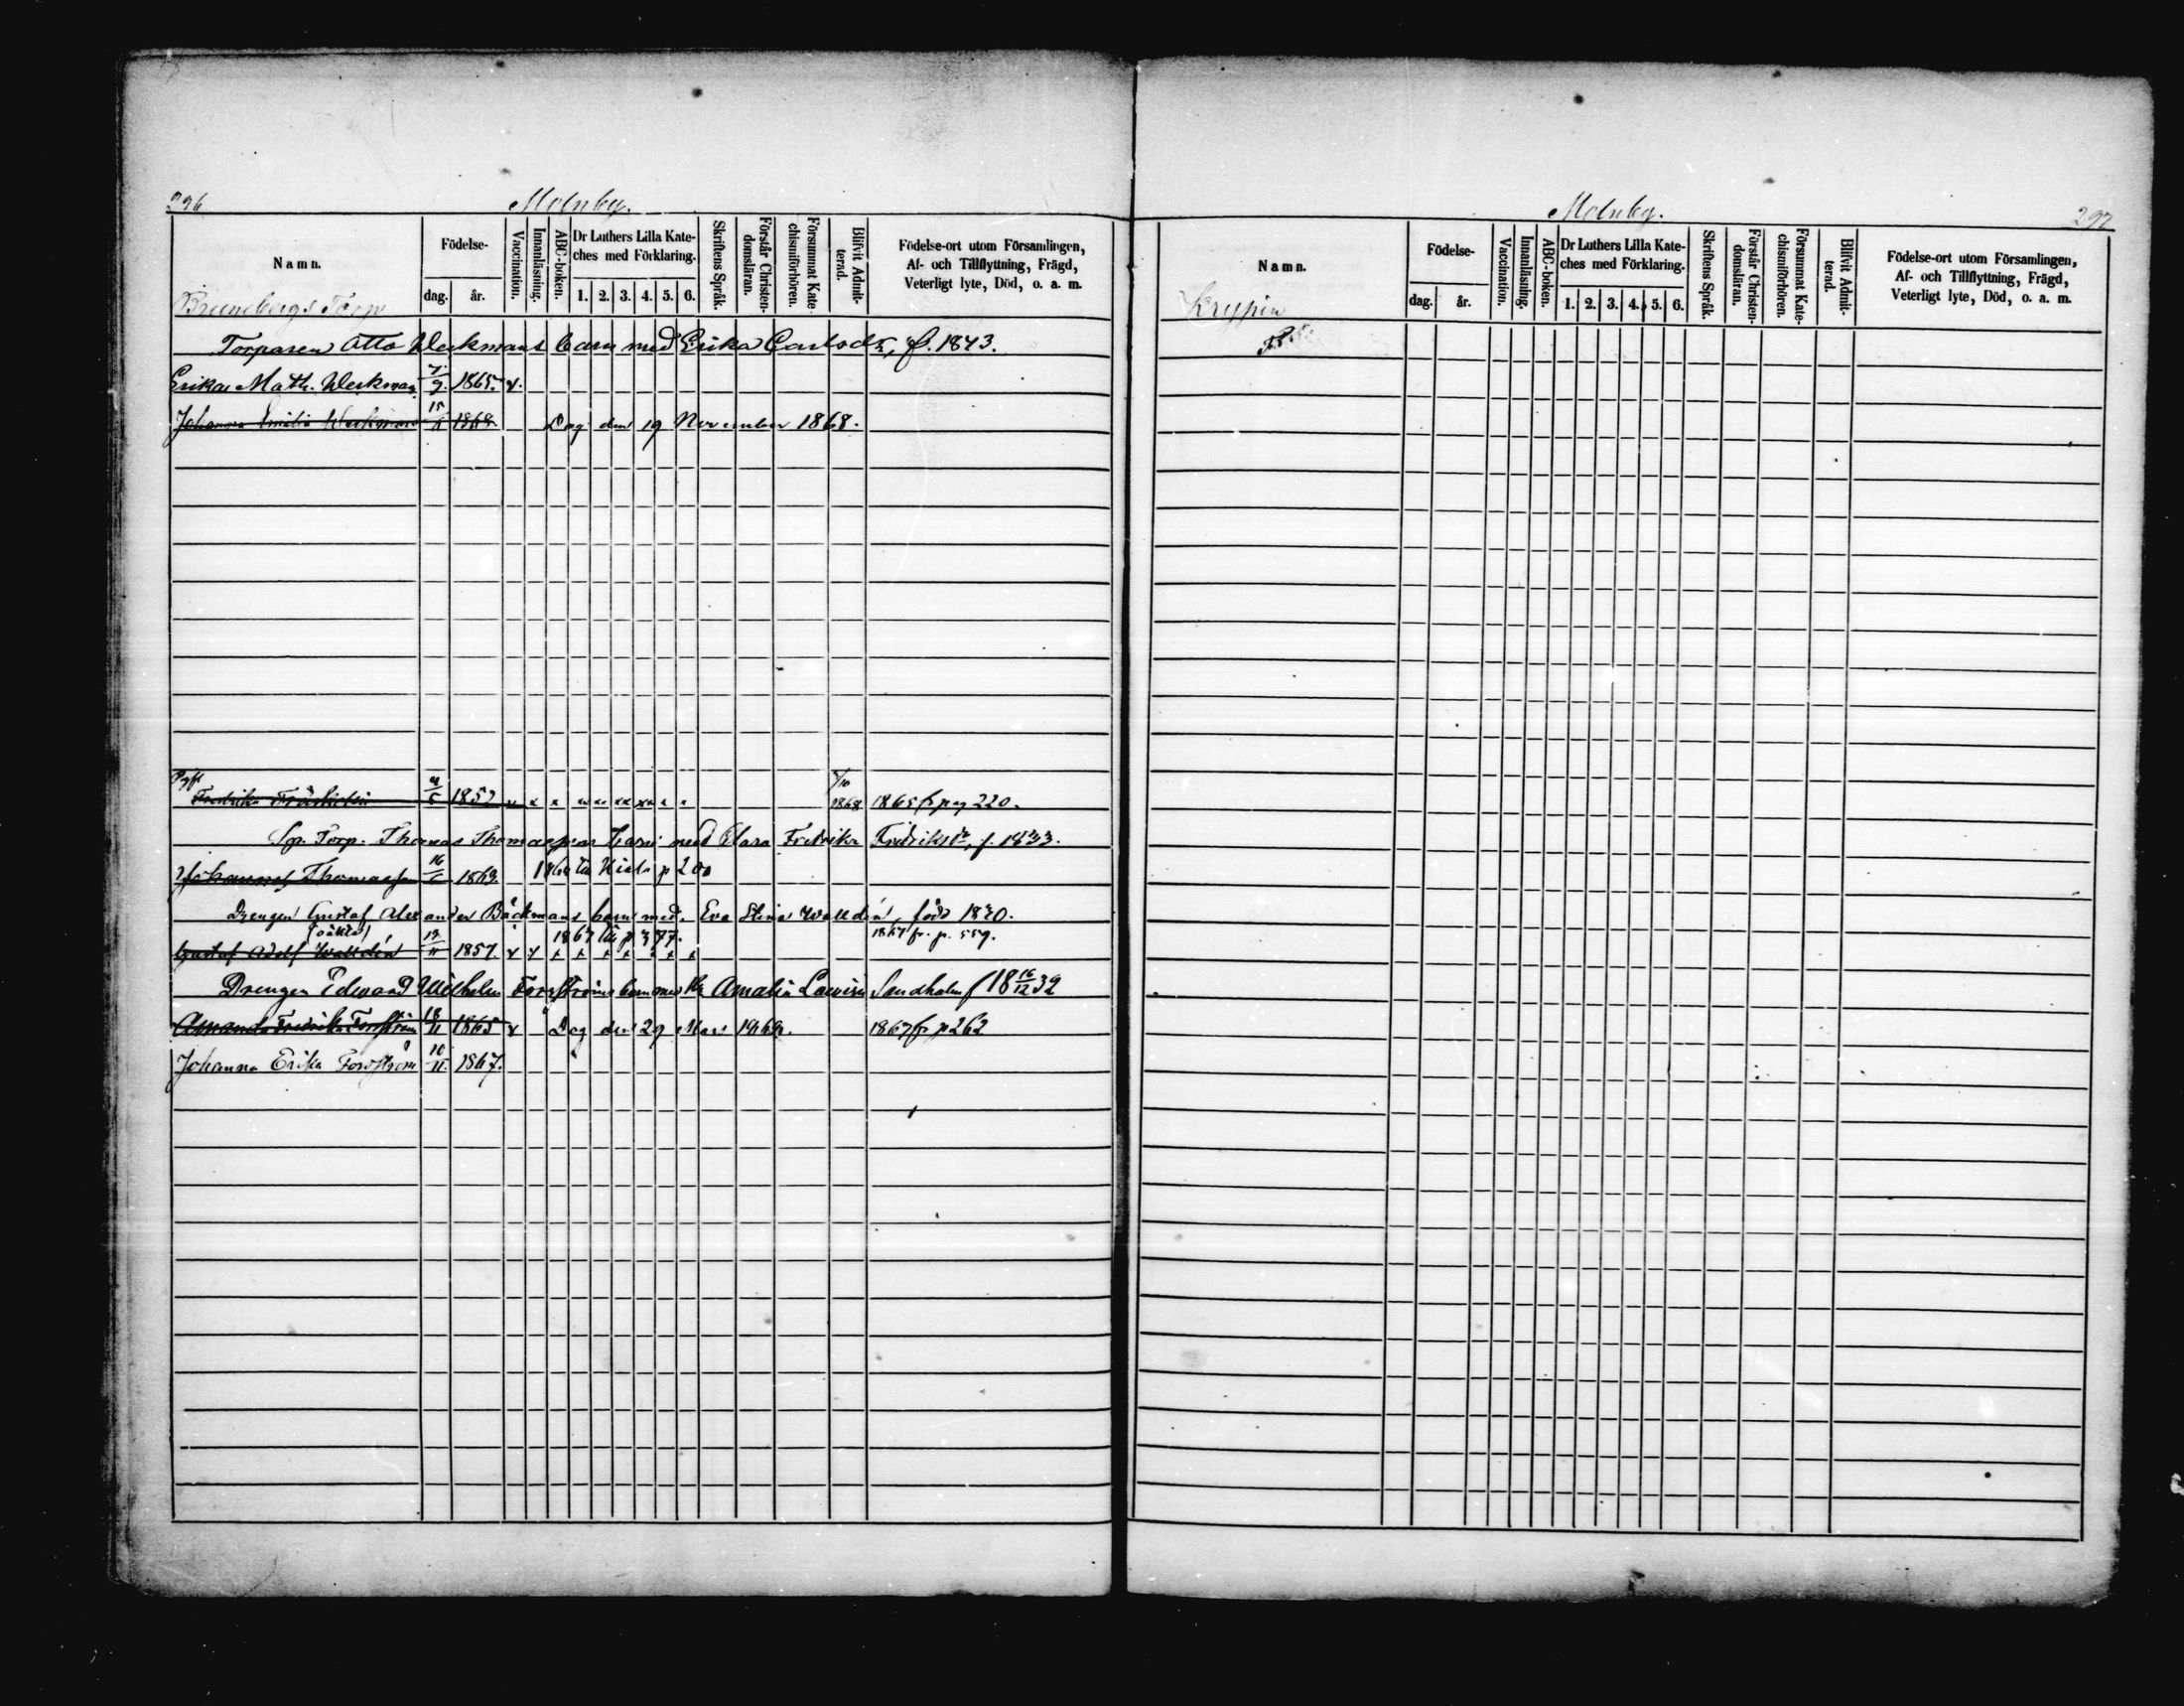 296 Molnby.
Namn. Födelse- dag. år. Vaccination. Innanläsning. ABC-boken. Dr Luthers Lilla Kateches med Förklaring. 1. 2. 3. 4. 5. 6. Skriftens Språk. Förstår Christendomsläran. Försummat Katechismiförhören. Blifvit Admitterad. Födelse-ort utom Församlingen, Af- och Tillflyttning, Frägd, Veterligt lyte, Död, o. a. m.
Brunebergs Torp
Torparen Otto Weckmans barn med Erika Carlsdr, f. 1843.
Erika Math. Weckman 7/9. 1865. v.
Johanna Emilia Weckman 15/11 1868. Dog den 19 November 1868.
Fredrika 4/5 1852 x x x x x x x x x /10 1868 1865 fr pag 220.
Torp. Thomas Thomassons barn med Clara Fredrika Fredriksdr, f. 1833.
Johannes Thomasson 16/ 1863. till p 200
Drengen Gustaf Alexander Bäckmans barn med. Eva Stina Walldén, född 1820.
(oäkta) 1867 till p 377. 1867 fr. p. 559.
Gustaf Adolf Walldén 13/11 1857. v v x x x x x x x
Drengen Edvard Wilhelm Forsströms barn med Amalia Lovisa Sandholm f 18 16/12 32
Amanda Fredrika Forsström 18/11 1865 v Dog den 29 Mars 1868. 1867 fr p 262
Johanna Erika Forsström 10/11. 1867.
Molnby. 297
Namn. Födelse- dag. år. Vaccination. Innanläsning. ABC-boken. Dr Luthers Lilla Kateches med Förklaring. 1. 2. 3. 4. 5. 6. Skriftens Språk. Förstår Christendomsläran. Försummat Katechismiförhören. Blifvit Admitterad. Födelse-ort utom Församlingen, Af- och Tillflyttning, Frägd, Veterligt lyte, Död, o. a. m.
Kryppin